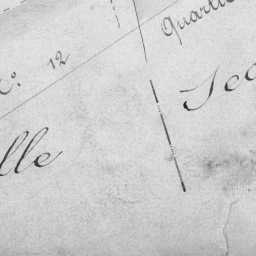 Quartie
c. 12
Sec
lle